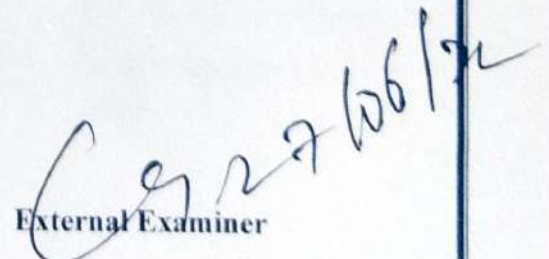 27/06/22
External Examiner